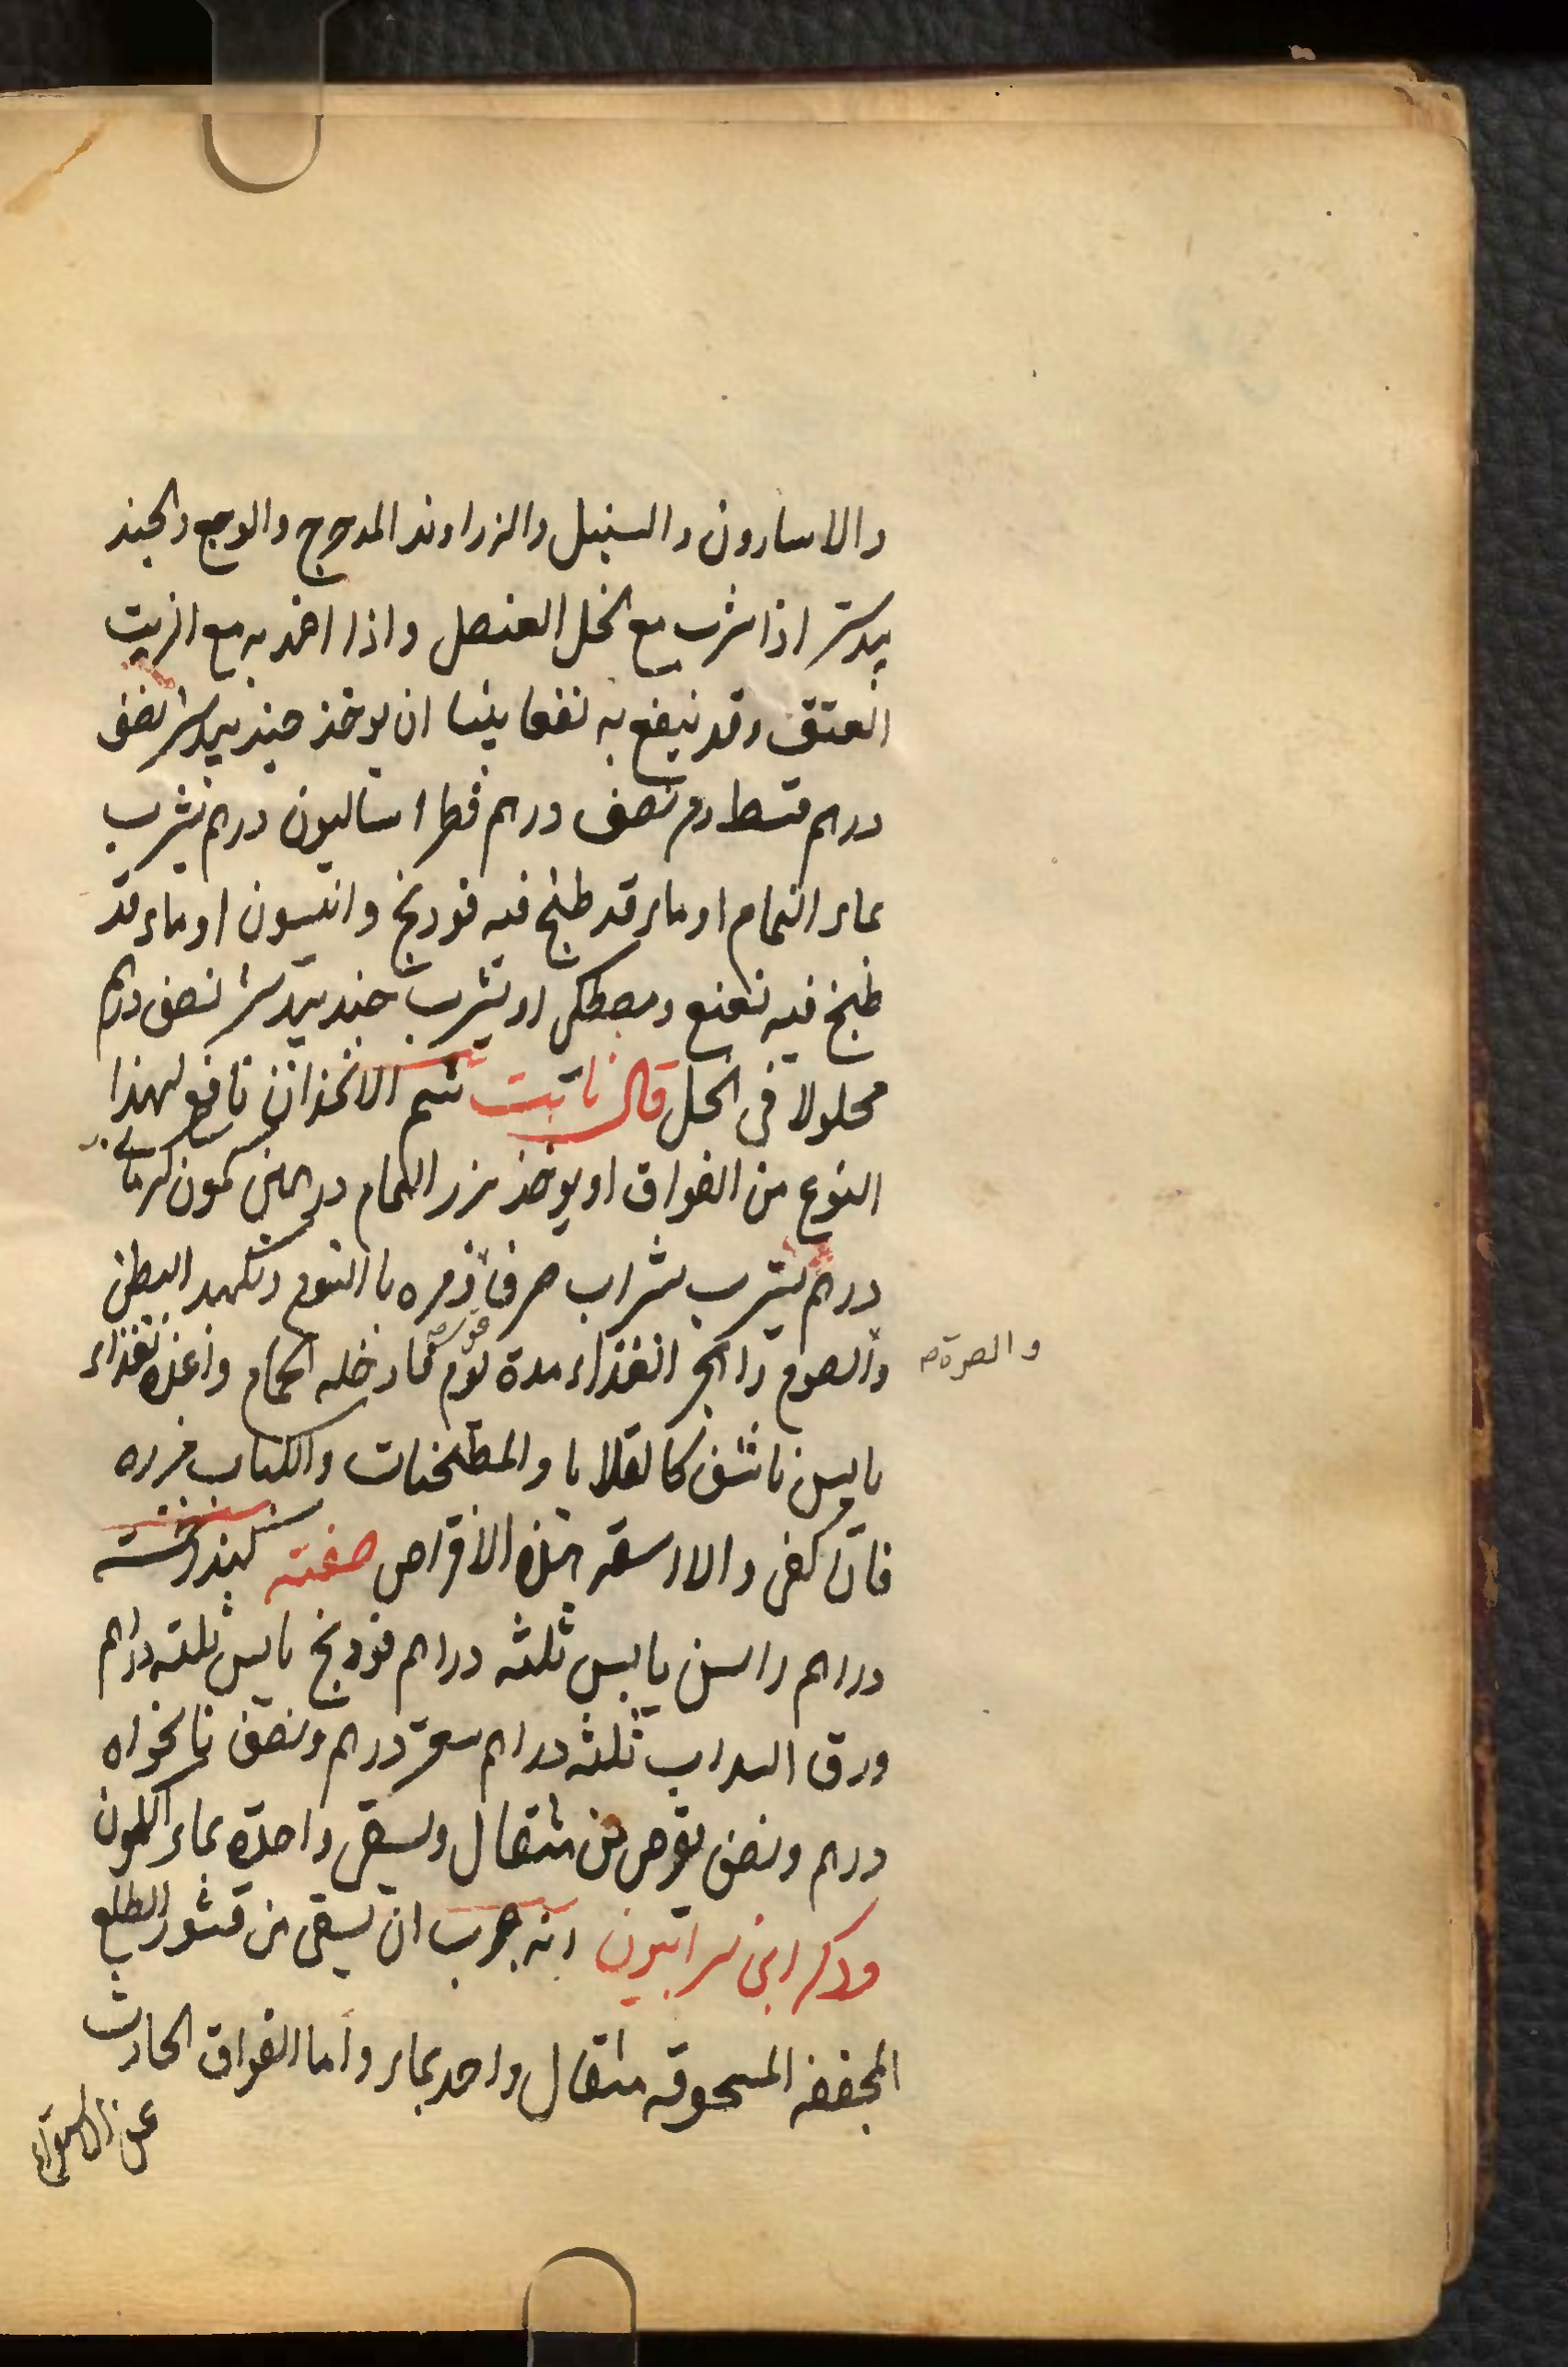 والاسارون والسنبل والزراوند المدحرج والوج والجند
بيدستر اذا شرب مع الخل العنصل واذا اخذ به مع الزيت
العتق وقد ينفع به نفعا بينا ان يوخذ جندبيدستر نصف
درهم قسط نصف درهم فطراساليون درهم يشرب
بماء النمام او ماء قد طبخ فيه فودنج وانيسون او ماء قد
طبخ فيه نعنع ومصطكى او يشرب جندبيدستر نصف درهم
محلولا فى الخل قال ثابت شم الانجذان نافع لهذا
النوع من الفواق او يوخذ بزر النمام درهمين كمون كرمانى
درهم يشرب بشراب صرف ومره بالنوم وتكميد البطن
والصوم واهجر الغذاء مدة يوم ثم ادخله الحمام واغذه بغذاء
والصرة صح
يابس ناشف كالقلايا والمطجنات والكباب مزوره
فان كفى والا اسقه هذه الاقراص صفته كندر خمسة
دراهم راسن يابس ثلثه دراهم فودنج يابس ثلثه دراهم
ورق السداب ثلثه دراهم سعتر درهم ونصف نانخواه
درهم ونصف يقرص من مثقال ويسقى واحدة بماء الكمون
وذكر ابن سرابيون انه جرب ان يسقى من قشور الطلع
المجففه المسحوقه مثقال واحد بماء واما الفواق الحادث
عن الاستفراغ